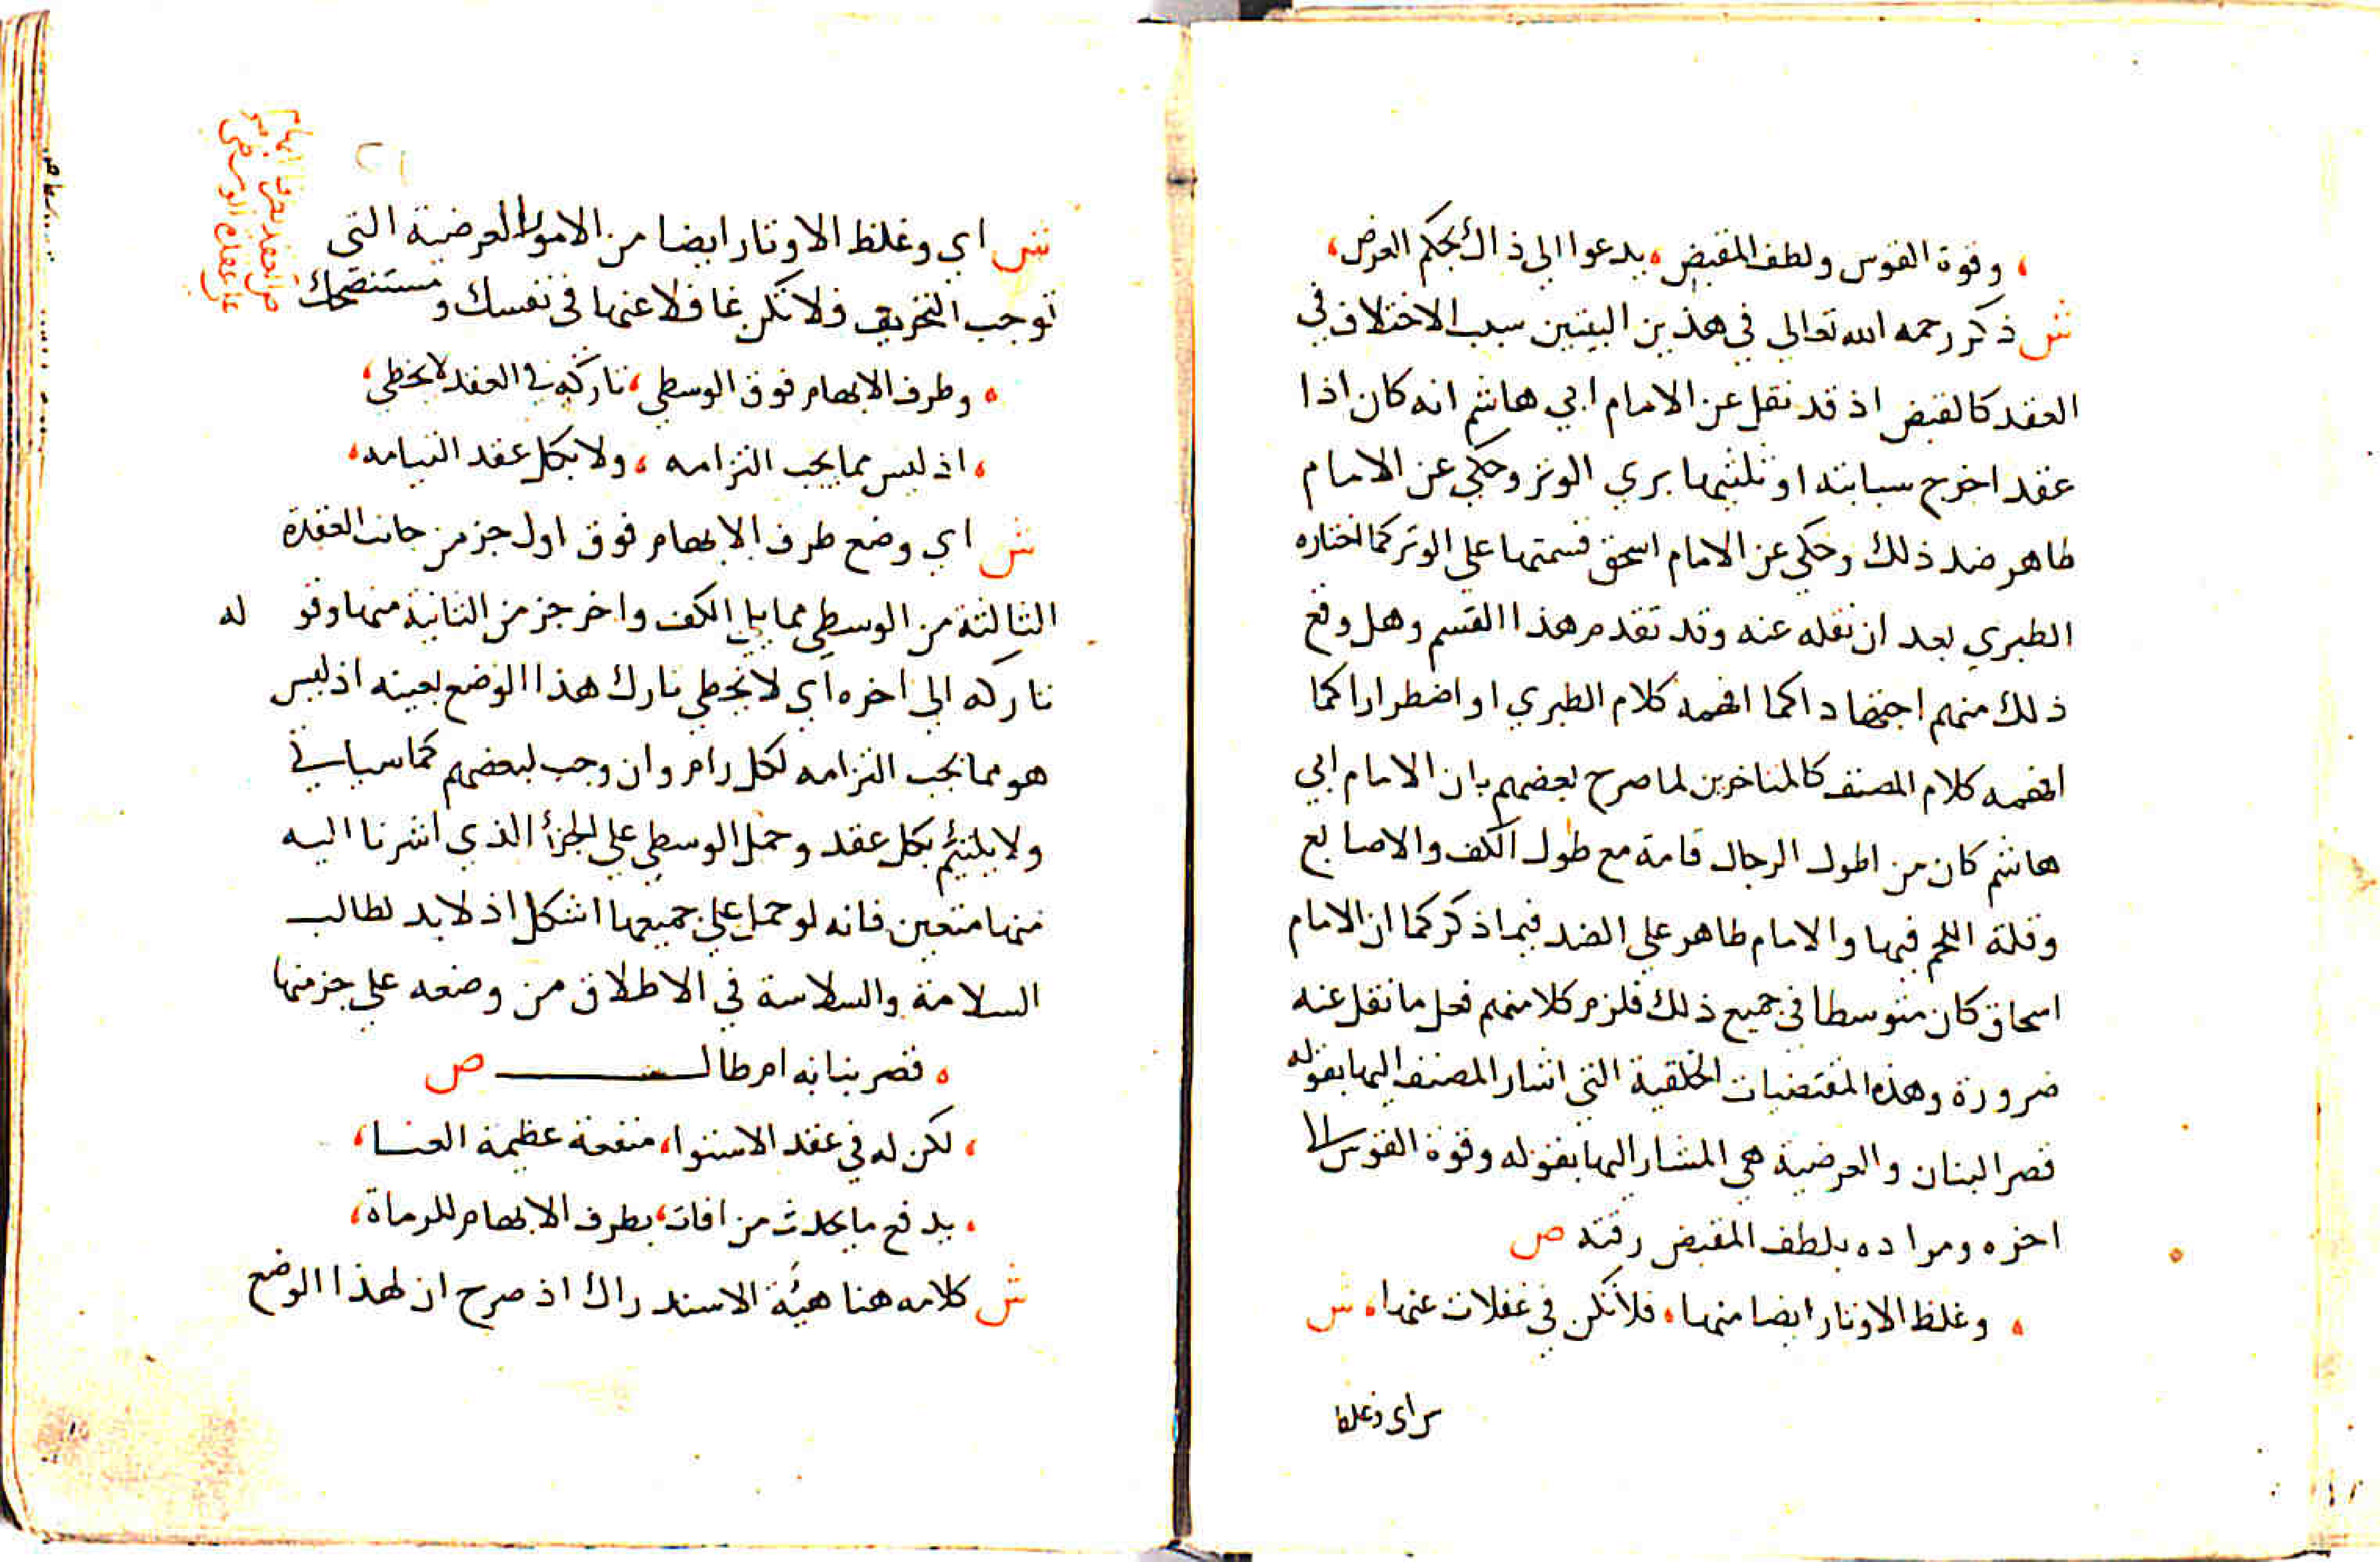 ، وقوة القوس ولطف المقبض ، يدعوا الي ذاك بحكم العرض ،
ش ذكر رحمه الله تعالي في هذين البيتين سبب الاختلاف في
العقد كالقبض اذ قد نقل عن الامام ابي هاشم انه كان اذا
عقد اخرج سبابته او ثلثيها بري الوتر وحكي عن الامام
طاهر ضد ذلك وحكي عن الامام اسحق قسمتها علي الوتر كما اختاره
الطبري بعد ان نقله عنه وقد تقدم هذا القسم وهل وقع
ذلك منهم اجتهادا كما افهمه كلام الطبري او اضطرارا كما
افهمه كلام المصنف كالمتاخرين لما صرح بعضهم بان الامام ابي
هاشم كان من اطول الرجال قامة مع طول الكف والاصابع
وقلة اللحم فيها والامام طاهر علي الضد فيما ذكر كما ان الامام
اسحاق كان متوسطا في جميع ذلك فلزم كلا منهم فعل ما نقل عنه
ضرورة وهذه المقتضيات الخلقية التي اشار المصنف اليها بقوله
قصر البنان والعرضية هي المشار اليها بقوله وقوة القوس الي
اخره ومراده بلطف المقبض رقته ص
، وغلظ الاوتار ايضا منها ، فلا تكن في غفلات عنها ، ش
ش اي وغلظ
ش اي وغلظ الاوتار ايضا من الامور العرضية التي
توجب التحريف فلا تكن غافلا عنها في نفسك ومستنصحك
، وطرف الابهام فوق الوسطي ، تاركه في العقد لا يخطي ،
، اذ ليس مما يجب التزامه ، ولا بكل عقد التيامه ،
ش اي وضع طرف الابهام فوق اول جز من جانب العقدة
الثالثة من الوسطي مما يلي الكف واخر جز من الثانية منها وقوله
تاركه الي اخره اي لا يخطي تارك هذا الوضع بعينه اذ ليس
هو مما يجب التزامه لكل رام وان وجب لبعضهم كما سياتي
ولا يلتئم بكل عقد وحمل الوسطي علي الجزأ الذي اشرنا اليه
منها متعين فانه لو حمل علي جميعها اشكل اذ لا بد لطالب
السلامة والسلاسة في الاطلاق من وضعه علي جز منها
، قصر بنانه ام طالــــت ص
، لكن له في عقد الاستوا ، منفعة عظيمة الغنا ،
، يدفع ما يحدث من افات ، بطرف الابهام للرماة ،
ش كلامه هنا هيئة الاستدراك اذ صرح ان لهذا الوضع